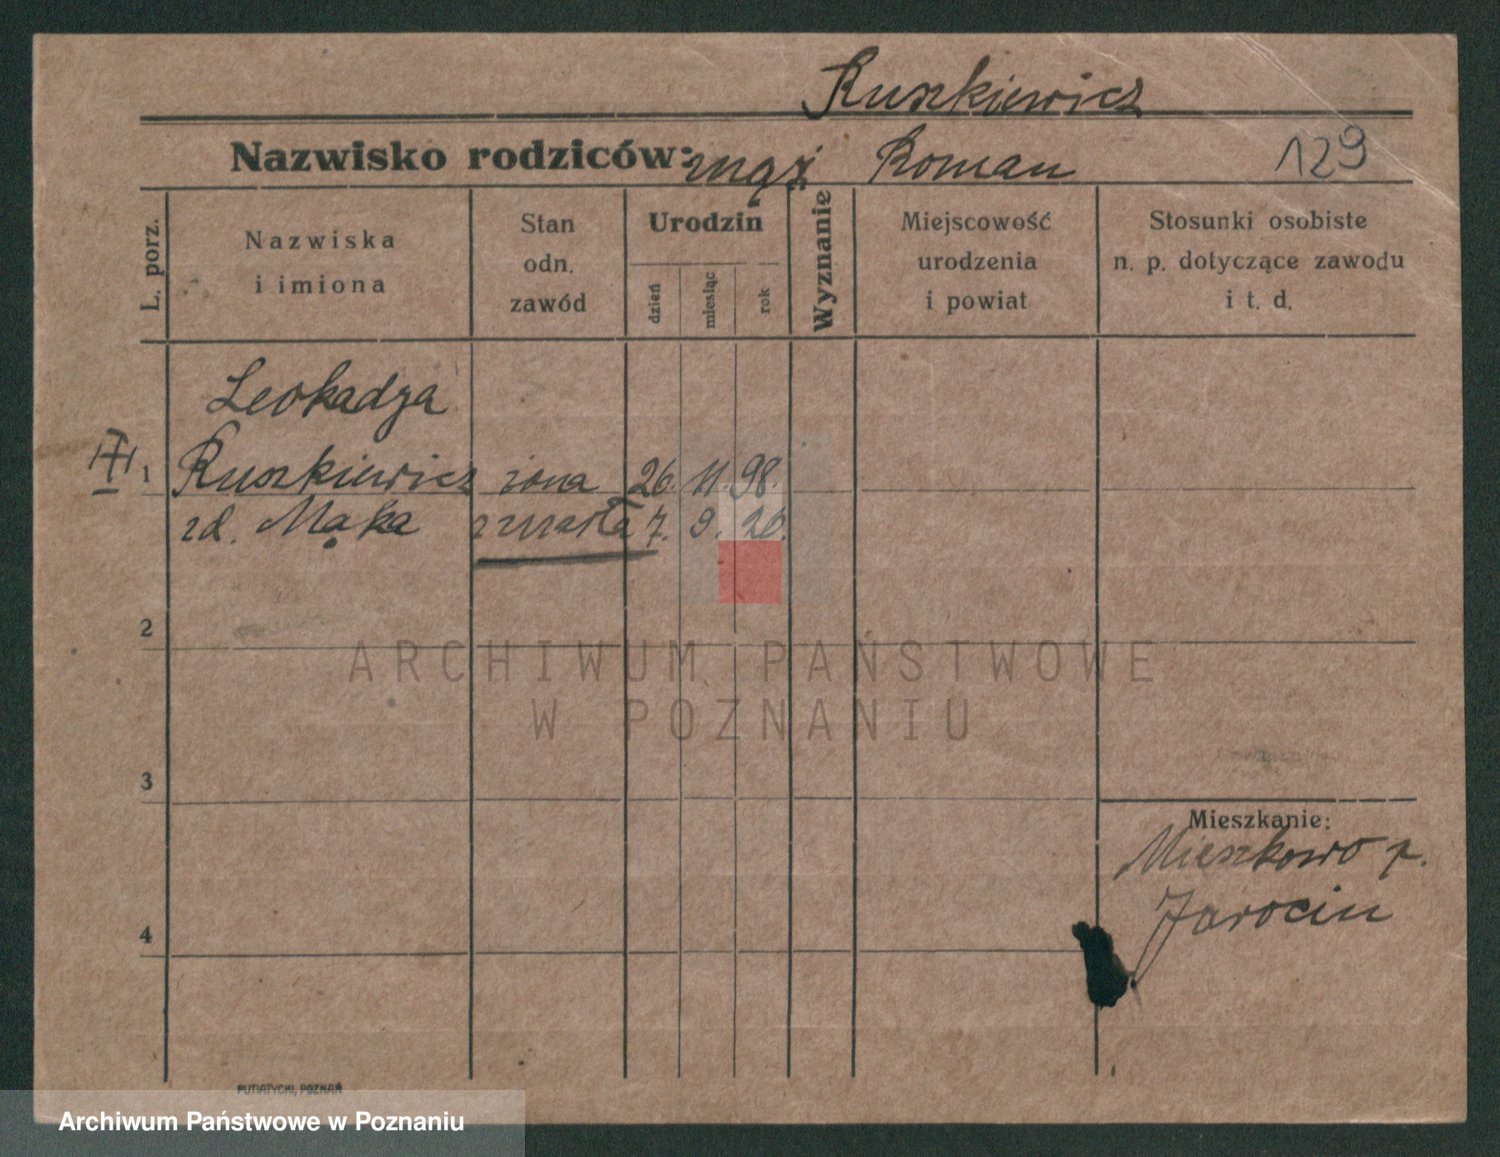 Ruszkiewicz
Nazwisko rodziców: mąż Roman 129
L. porz.
Nazwiska
i imiona
Stan
odn.
zawód
Urodzin
dzień
miesiąc
rok
Wyznanie
Miejscowość
urodzenia
i powiat
Stosunki osobiste
n. p. dotyczące zawodu
i t. d.
Leokadya
1 Ruszkiewicz żona 26. 11. 98.
zd. Mąka zmarła 7. 9. 20.
2
ARCHIWUM PAŃSTWOWE
W POZNANIU
3
Mieszkanie:
Mieszkowo p.
Jarocin
4
PUTIATYCKI, POZNAŃ
Archiwum Państwowe w Poznaniu